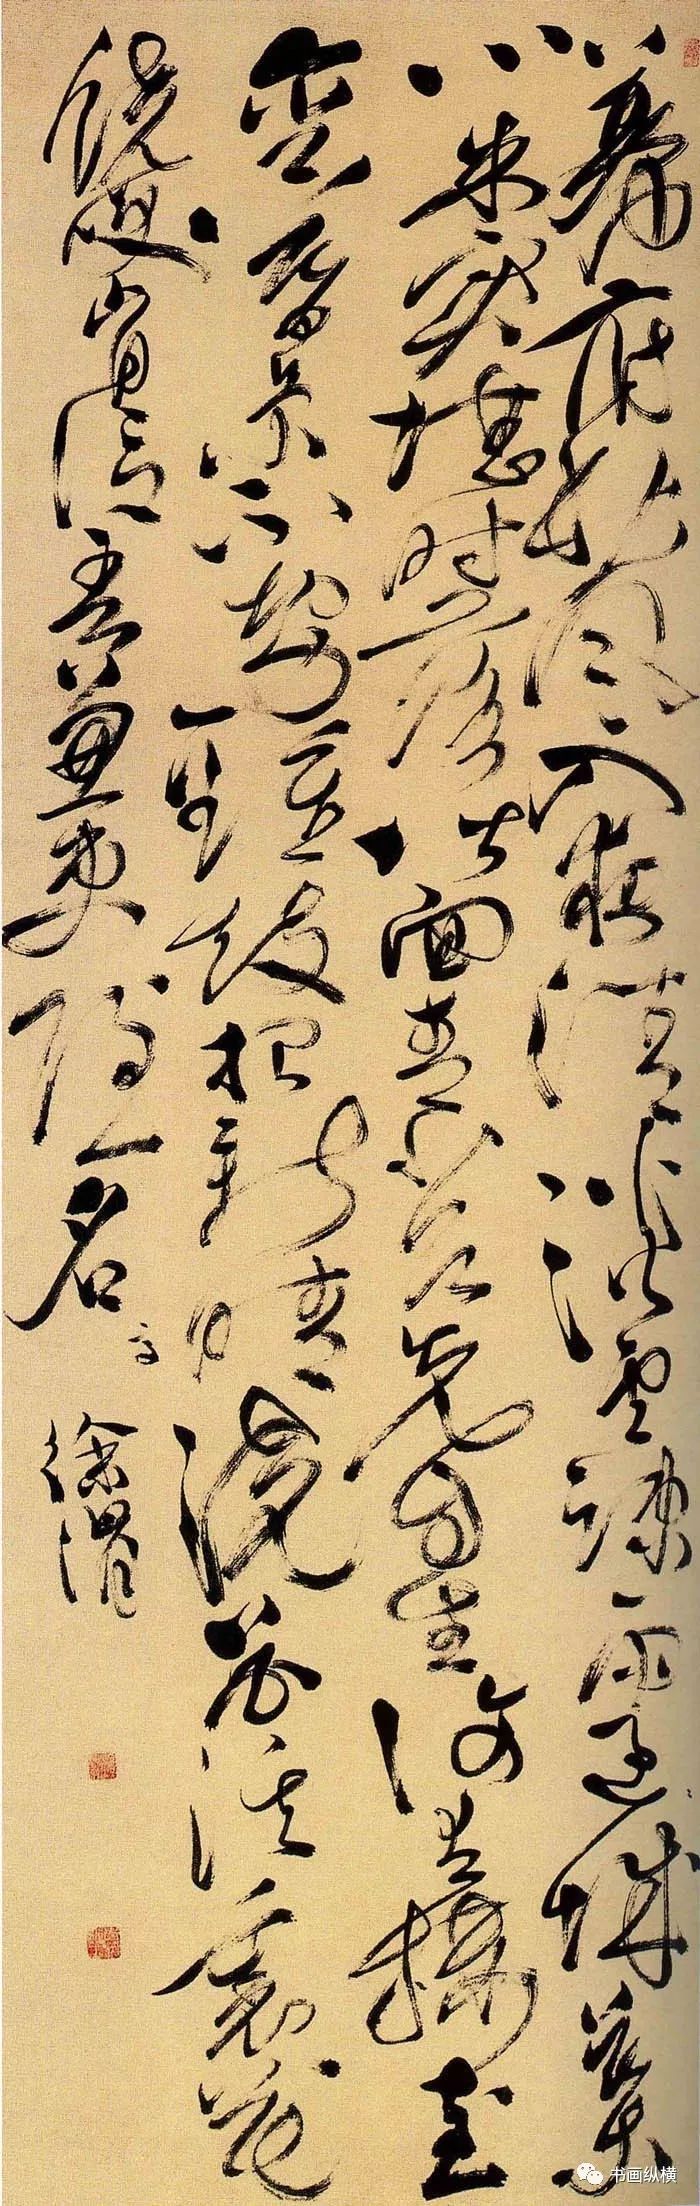 幕府秋風入夜清淡雲疎雨過城葉
心朱實堪時落階面青苔先自生有樓臺
暮景不勞鐘鼓報新晴浣花溪裏花
饒笑肯信吾兼吏隱名
徐渭
书画纵横